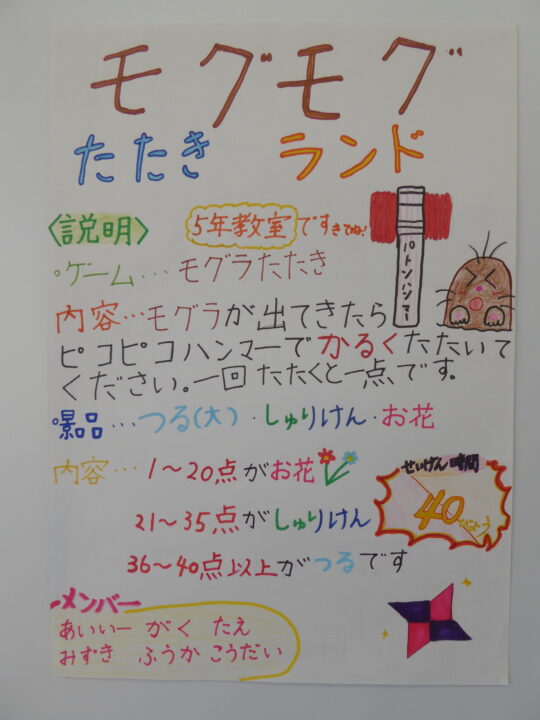 モグモグ
たたき ランド
〈説明〉 5年教室ですきてね!
ゲーム…モグラたたき
内容…モグラが出てきたら
ピコピコハンマーでかるくたたいて
ください。一回たたくと一点です。
景品…つる(大)・しゅりけん・お花
内容…1〜20点がお花
21〜35点がしゅりけん
36〜40点以上がつるです
せいげん時間
40びょう
メンバー
あいいー がく たえ
みずき ふうか こうだい